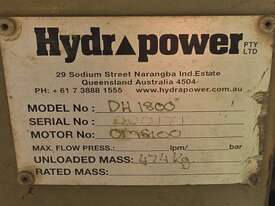 Hydrapower PTY LTD
29 Sodium Street Narangba Ind.Estate
Queensland Australia 4504
PH: + 61 7 3888 1555 www.hydrapower.com.au
MODEL No : DH 1800
SERIAL No :
MOTOR No :
MAX. FLOW PRESS.: lpm/ bar
UNLOADED MASS: 474 Kg
RATED MASS: